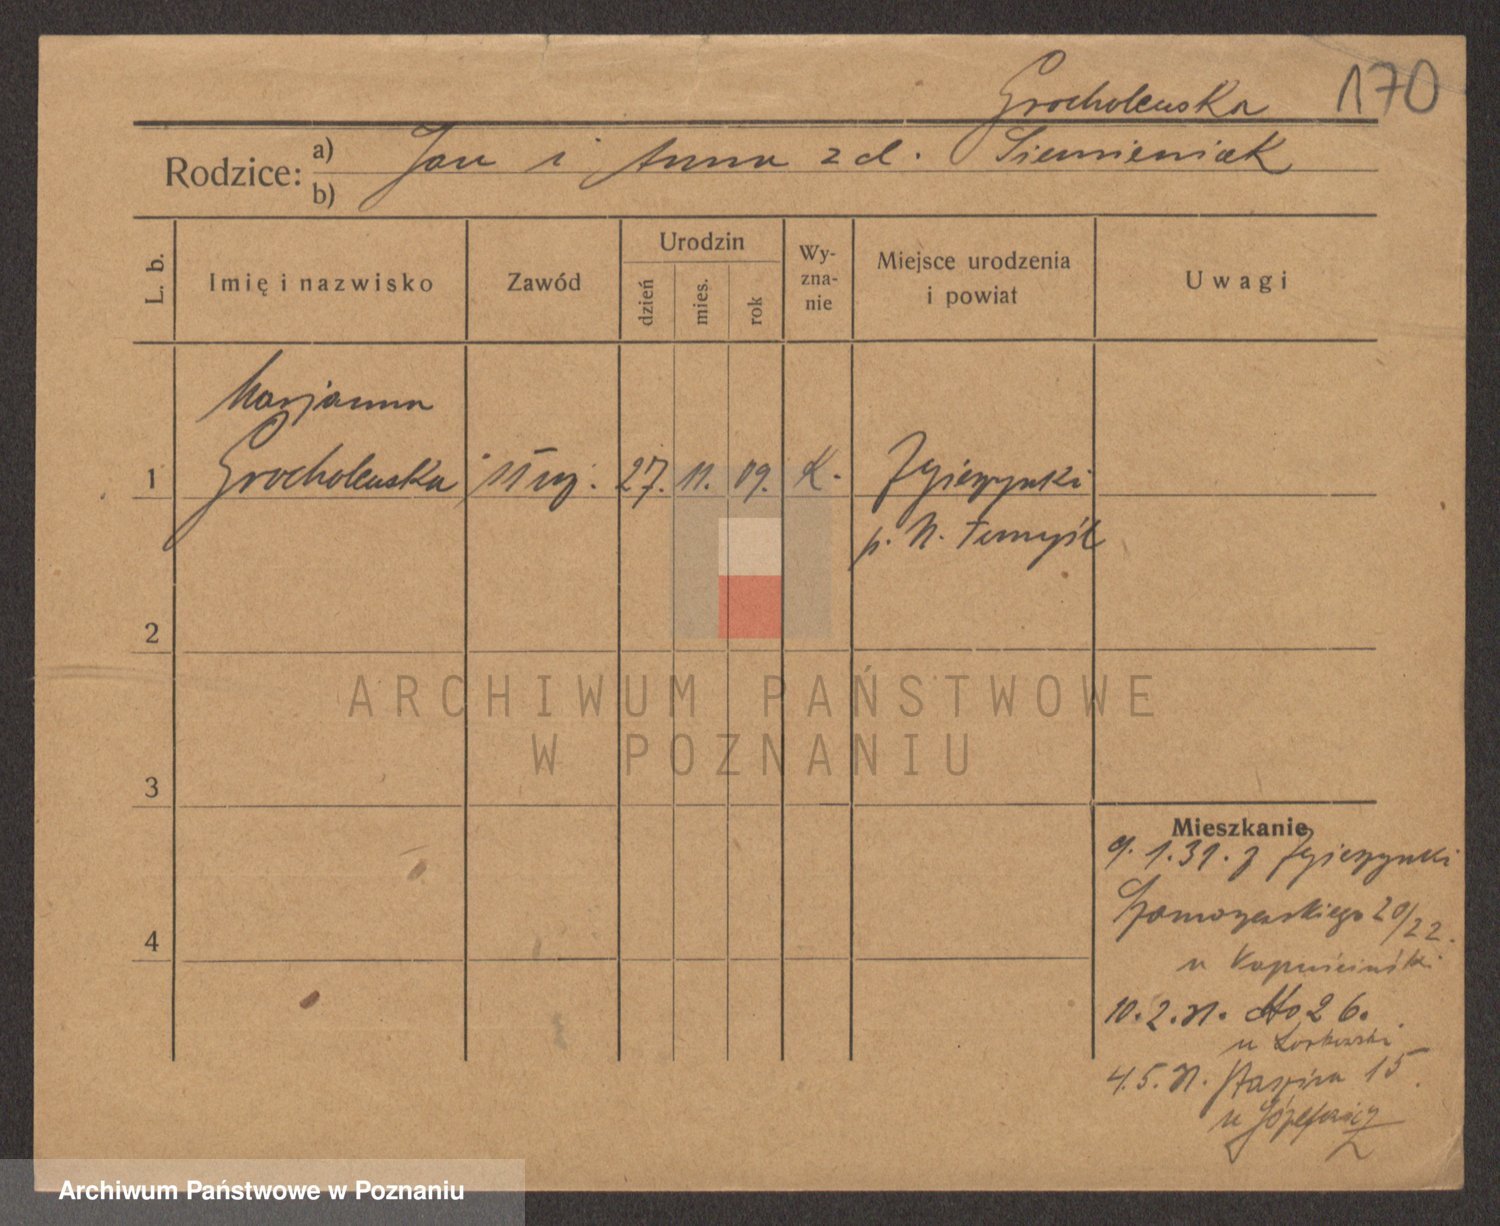 Grocholewska 170
Rodzice: a) Jan i Anna z d. Siemieniak
b)
L. b. Imię i nazwisko Zawód Urodzin dzień mies. rok Wy-zna-nie Miejsce urodzenia i powiat Uwagi
Marjanna
1 Grocholewska służ. 27. 11. 09. K. Zgierzynki
p. N. Tomyśl
2
ARCHIWUM PAŃSTWOWE
W POZNANIU
3
Mieszkanie
9. 1. 31. z Zgierzynki
20/22.
u Kapuściński
4
10. 2. 31. 26.
u
4. 5. 31. 15.
u
Archiwum Państwowe w Poznaniu